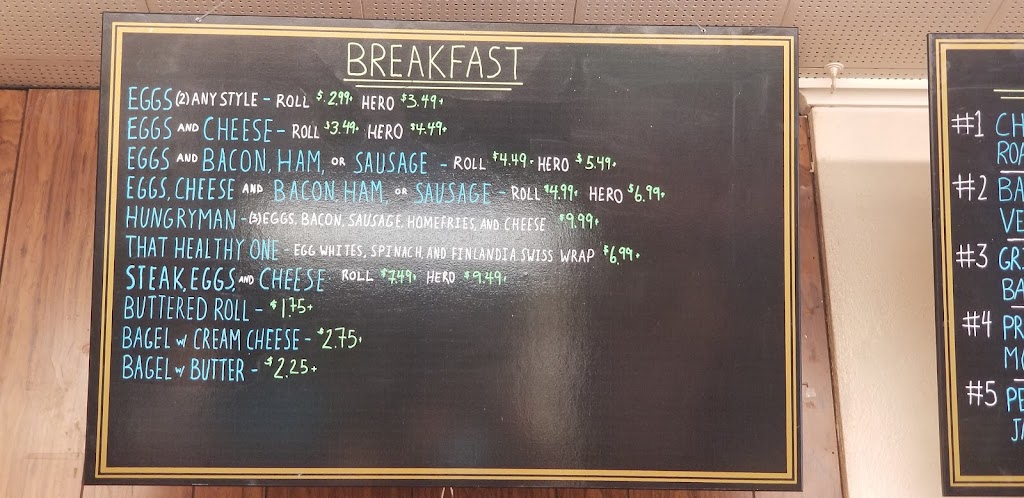 BREAKFAST
EGGS (2) ANY STYLE - ROLL $2.99+ HERO $3.49+
EGGS AND CHEESE - ROLL $3.49+ HERO $4.49+
EGGS AND BACON, HAM, OR SAUSAGE - ROLL $4.49+ HERO $5.49+
EGGS, CHEESE AND BACON, HAM, OR SAUSAGE - ROLL $4.99+ HERO $6.99+
HUNGRYMAN - (3) EGGS, BACON, SAUSAGE, HOMEFRIES, AND CHEESE $9.99+
THAT HEALTHY ONE - EGG WHITES, SPINACH, AND FINLANDIA SWISS WRAP $6.99+
STEAK, EGGS, AND CHEESE ROLL $7.49+ HERO $9.49+
BUTTERED ROLL - $1.75+
BAGEL w/ CREAM CHEESE - $2.75+
BAGEL w/ BUTTER - $2.25+
#1 CH
ROA
#2 BA
VE
#3 GR
BA
#4 PR
MO
#5 PE
JA